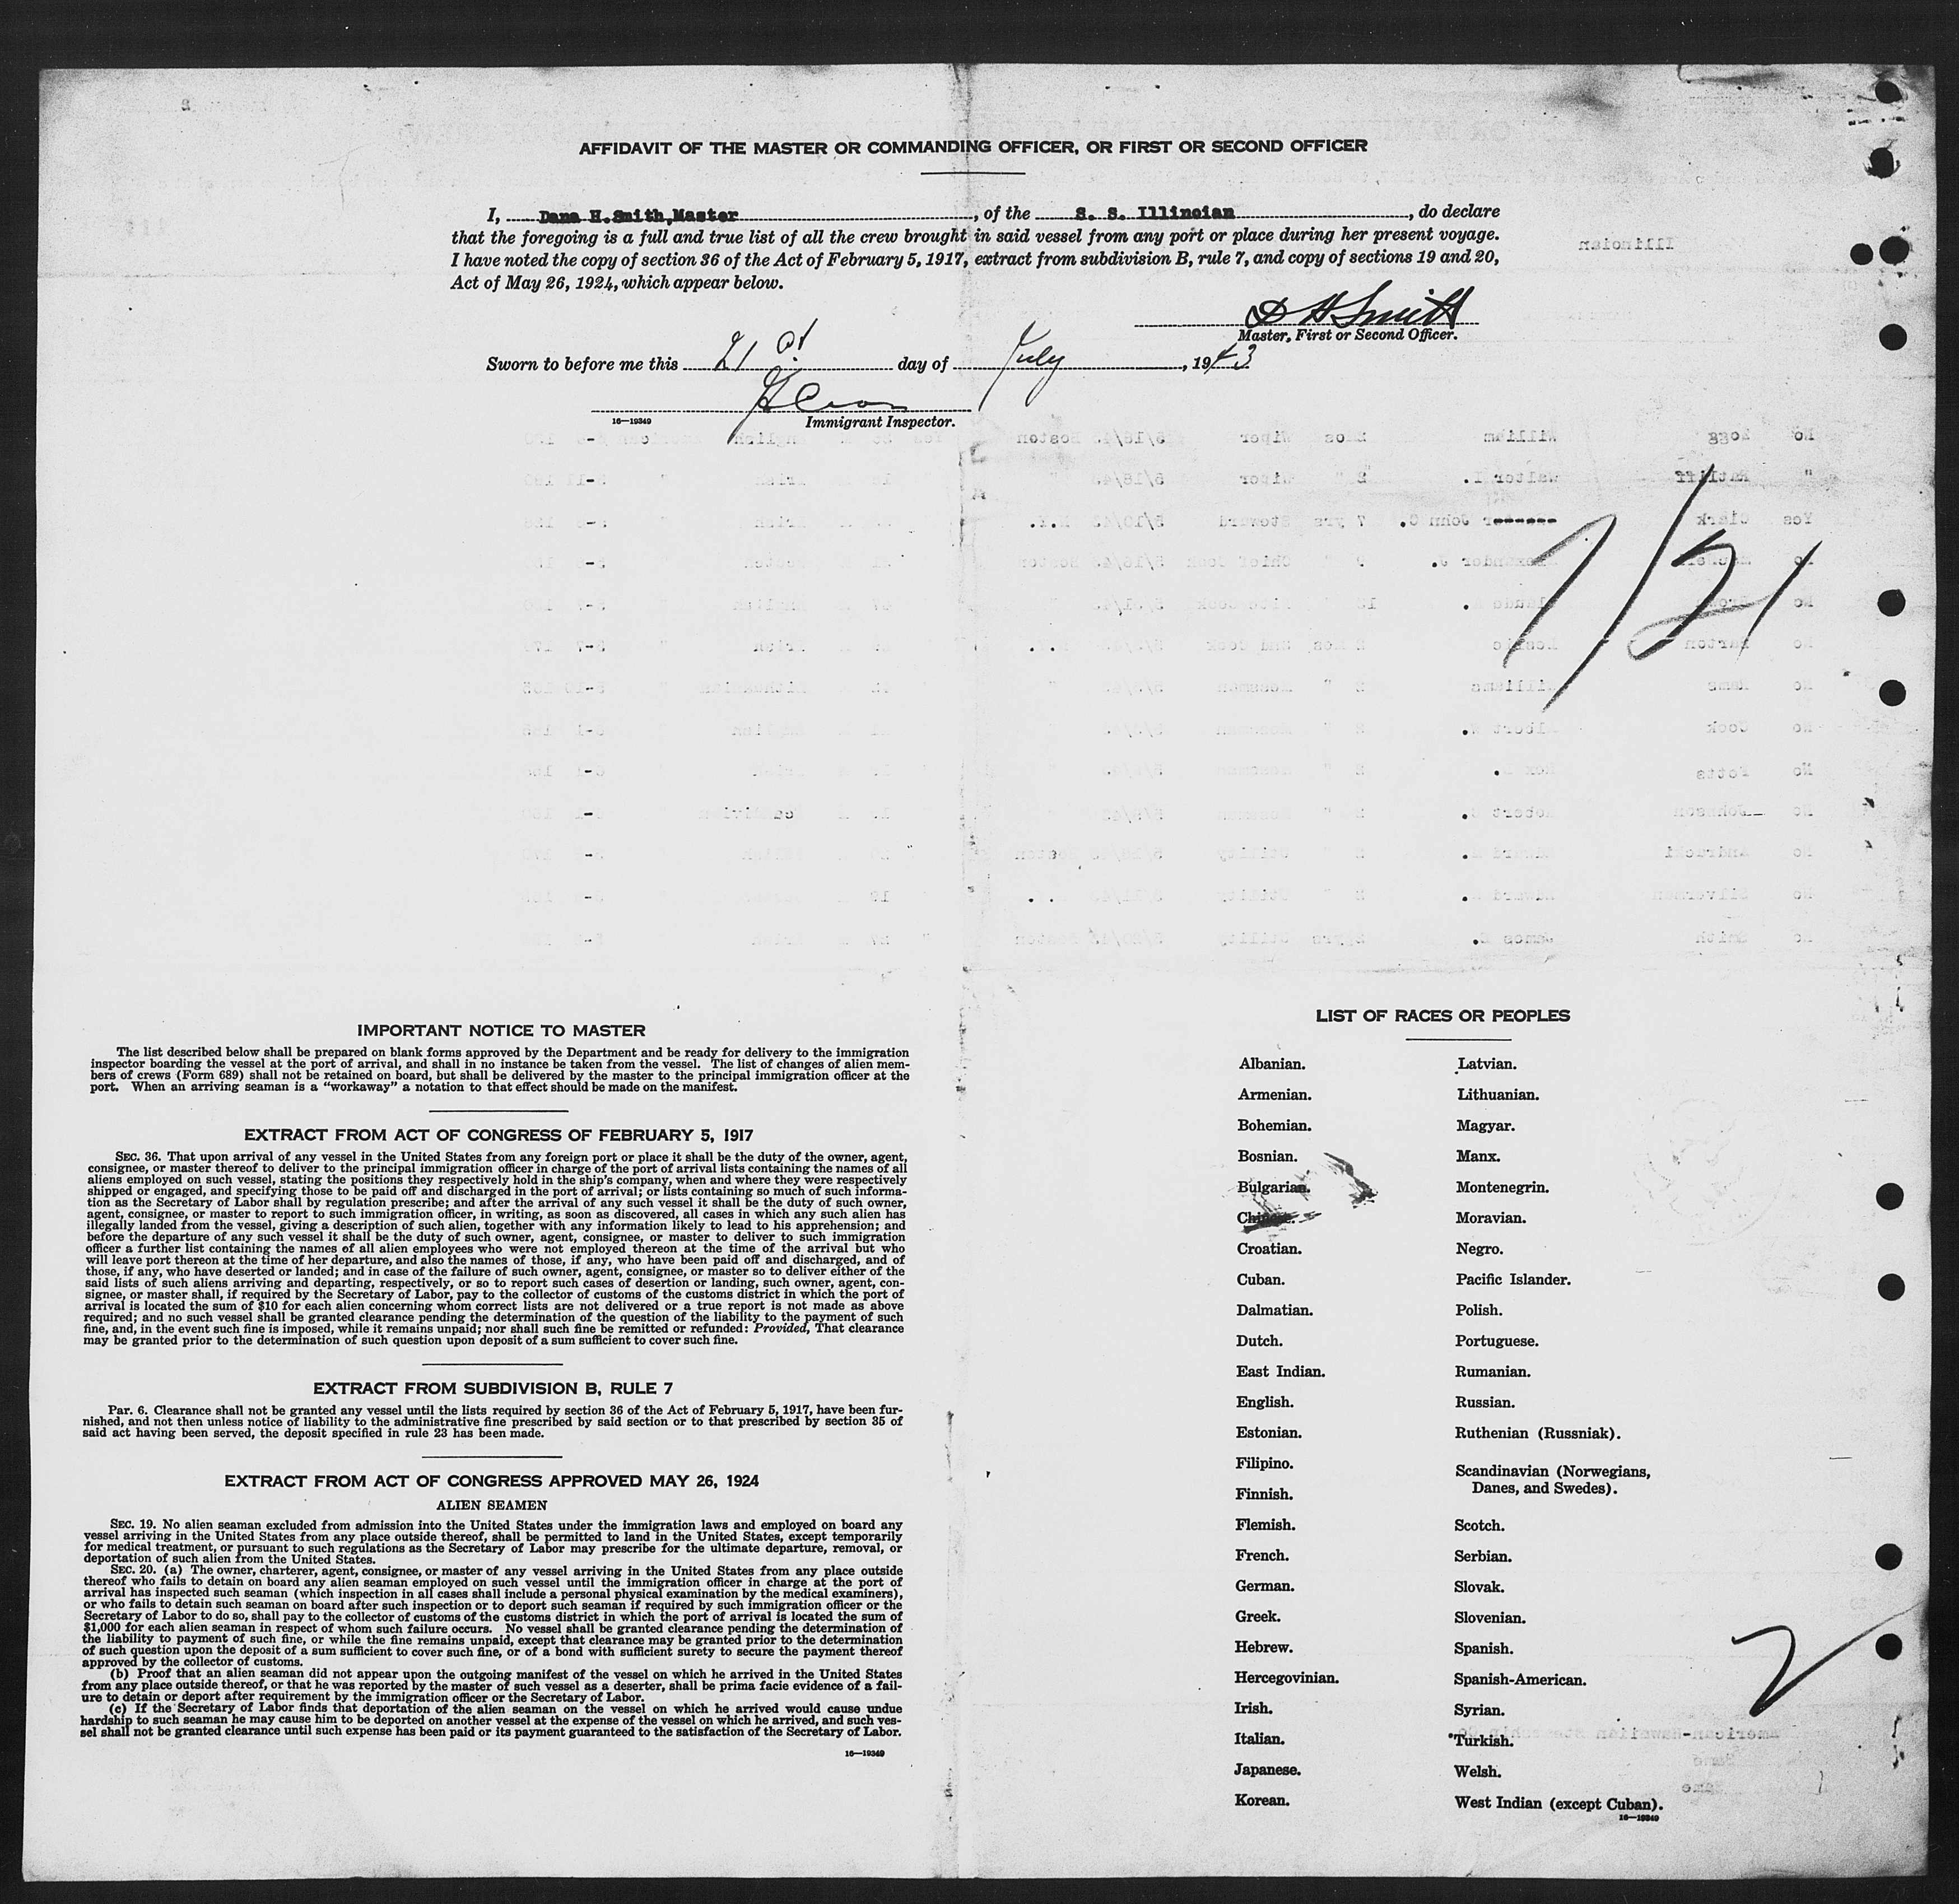 AFFIDAVIT OF THE MASTER OR COMMANDING OFFICER, OR FIRST OR SECOND OFFICER
I, Dana H.Smith,Master, of the S. S. Illinoian, do declare
that the foregoing is a full and true list of all the crew brought in said vessel from any port or place during her present voyage.
I have noted the copy of section 36 of the Act of February 5, 1917, extract from subdivision B, rule 7, and copy of sections 19 and 20,
Act of May 26, 1924, which appear below.
D H Smith
Master, First or Second Officer.
Sworn to before me this 21st day of July, 1943
16—19349 Immigrant Inspector.
7/21
IMPORTANT NOTICE TO MASTER
The list described below shall be prepared on blank forms approved by the Department and be ready for delivery to the immigration
inspector boarding the vessel at the port of arrival, and shall in no instance be taken from the vessel. The list of changes of alien mem-
bers of crews (Form 689) shall not be retained on board, but shall be delivered by the master to the principal immigration officer at the
port. When an arriving seaman is a "workaway" a notation to that effect should be made on the manifest.
EXTRACT FROM ACT OF CONGRESS OF FEBRUARY 5, 1917
SEC. 36. That upon arrival of any vessel in the United States from any foreign port or place it shall be the duty of the owner, agent,
consignee, or master thereof to deliver to the principal immigration officer in charge of the port of arrival lists containing the names of all
aliens employed on such vessel, stating the positions they respectively hold in the ship's company, when and where they were respectively
shipped or engaged, and specifying those to be paid off and discharged in the port of arrival; or lists containing so much of such informa-
tion as the Secretary of Labor shall by regulation prescribe; and after the arrival of any such vessel it shall be the duty of such owner,
agent, consignee, or master to report to such immigration officer, in writing, as soon as discovered, all cases in which any such alien has
illegally landed from the vessel, giving a description of such alien, together with any information likely to lead to his apprehension; and
before the departure of any such vessel it shall be the duty of such owner, agent, consignee, or master to deliver to such immigration
officer a further list containing the names of all alien employees who were not employed thereon at the time of the arrival but who
will leave port thereon at the time of her departure, and also the names of those, if any, who have been paid off and discharged, and of
those, if any, who have deserted or landed; and in case of the failure of such owner, agent, consignee, or master so to deliver either of the
said lists of such aliens arriving and departing, respectively, or so to report such cases of desertion or landing, such owner, agent, con-
signee, or master shall, if required by the Secretary of Labor, pay to the collector of customs of the customs district in which the port of
arrival is located the sum of $10 for each alien concerning whom correct lists are not delivered or a true report is not made as above
required; and no such vessel shall be granted clearance pending the determination of the question of the liability to the payment of such
fine, and, in the event such fine is imposed, while it remains unpaid; nor shall such fine be remitted or refunded: Provided, That clearance
may be granted prior to the determination of such question upon deposit of a sum sufficient to cover such fine.
EXTRACT FROM SUBDIVISION B, RULE 7
Par. 6. Clearance shall not be granted any vessel until the lists required by section 36 of the Act of February 5, 1917, have been fur-
nished, and not then unless notice of liability to the administrative fine prescribed by said section or to that prescribed by section 35 of
said act having been served, the deposit specified in rule 23 has been made.
EXTRACT FROM ACT OF CONGRESS APPROVED MAY 26, 1924
ALIEN SEAMEN
SEC. 19. No alien seaman excluded from admission into the United States under the immigration laws and employed on board any
vessel arriving in the United States from any place outside thereof, shall be permitted to land in the United States, except temporarily
for medical treatment, or pursuant to such regulations as the Secretary of Labor may prescribe for the ultimate departure, removal, or
deportation of such alien from the United States.
SEC. 20. (a) The owner, charterer, agent, consignee, or master of any vessel arriving in the United States from any place outside
thereof who fails to detain on board any alien seaman employed on such vessel until the immigration officer in charge at the port of
arrival has inspected such seaman (which inspection in all cases shall include a personal physical examination by the medical examiners),
or who fails to detain such seaman on board after such inspection or to deport such seaman if required by such immigration officer or the
Secretary of Labor to do so, shall pay to the collector of customs of the customs district in which the port of arrival is located the sum of
$1,000 for each alien seaman in respect of whom such failure occurs. No vessel shall be granted clearance pending the determination of
the liability to payment of such fine, or while the fine remains unpaid, except that clearance may be granted prior to the determination
of such question upon the deposit of a sum sufficient to cover such fine, or of a bond with sufficient surety to secure the payment thereof
approved by the collector of customs.
(b) Proof that an alien seaman did not appear upon the outgoing manifest of the vessel on which he arrived in the United States
from any place outside thereof, or that he was reported by the master of such vessel as a deserter, shall be prima facie evidence of a fail-
ure to detain or deport after requirement by the immigration officer or the Secretary of Labor.
(c) If the Secretary of Labor finds that deportation of the alien seaman on the vessel on which he arrived would cause undue
hardship to such seaman he may cause him to be deported on another vessel at the expense of the vessel on which he arrived, and such ves-
sel shall not be granted clearance until such expense has been paid or its payment guaranteed to the satisfaction of the Secretary of Labor.
16—19349
LIST OF RACES OR PEOPLES
Albanian.
Armenian.
Bohemian.
Bosnian.
Bulgarian.
Chinese.
Croatian.
Cuban.
Dalmatian.
Dutch.
East Indian.
English.
Estonian.
Filipino.
Finnish.
Flemish.
French.
German.
Greek.
Hebrew.
Hercegovinian.
Irish.
Italian.
Japanese.
Korean.
Latvian.
Lithuanian.
Magyar.
Manx.
Montenegrin.
Moravian.
Negro.
Pacific Islander.
Polish.
Portuguese.
Rumanian.
Russian.
Ruthenian (Russniak).
Scandinavian (Norwegians,
Danes, and Swedes).
Scotch.
Serbian.
Slovak.
Slovenian.
Spanish.
Spanish-American.
Syrian.
Turkish.
Welsh.
West Indian (except Cuban).
16—19349
2